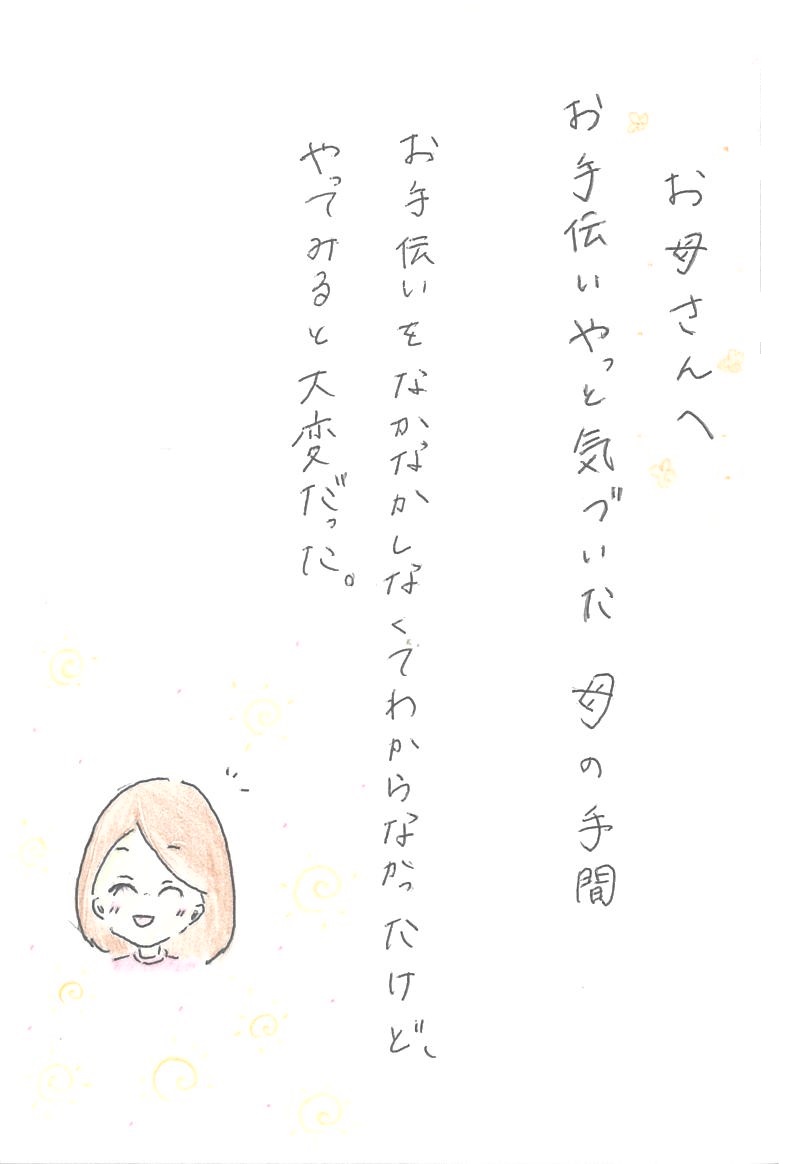 お母さんへ
お手伝いやっと気づいた 母の手間
お手伝いをなかなかしなくてわからなかっただけど、
やってみると大変だった。